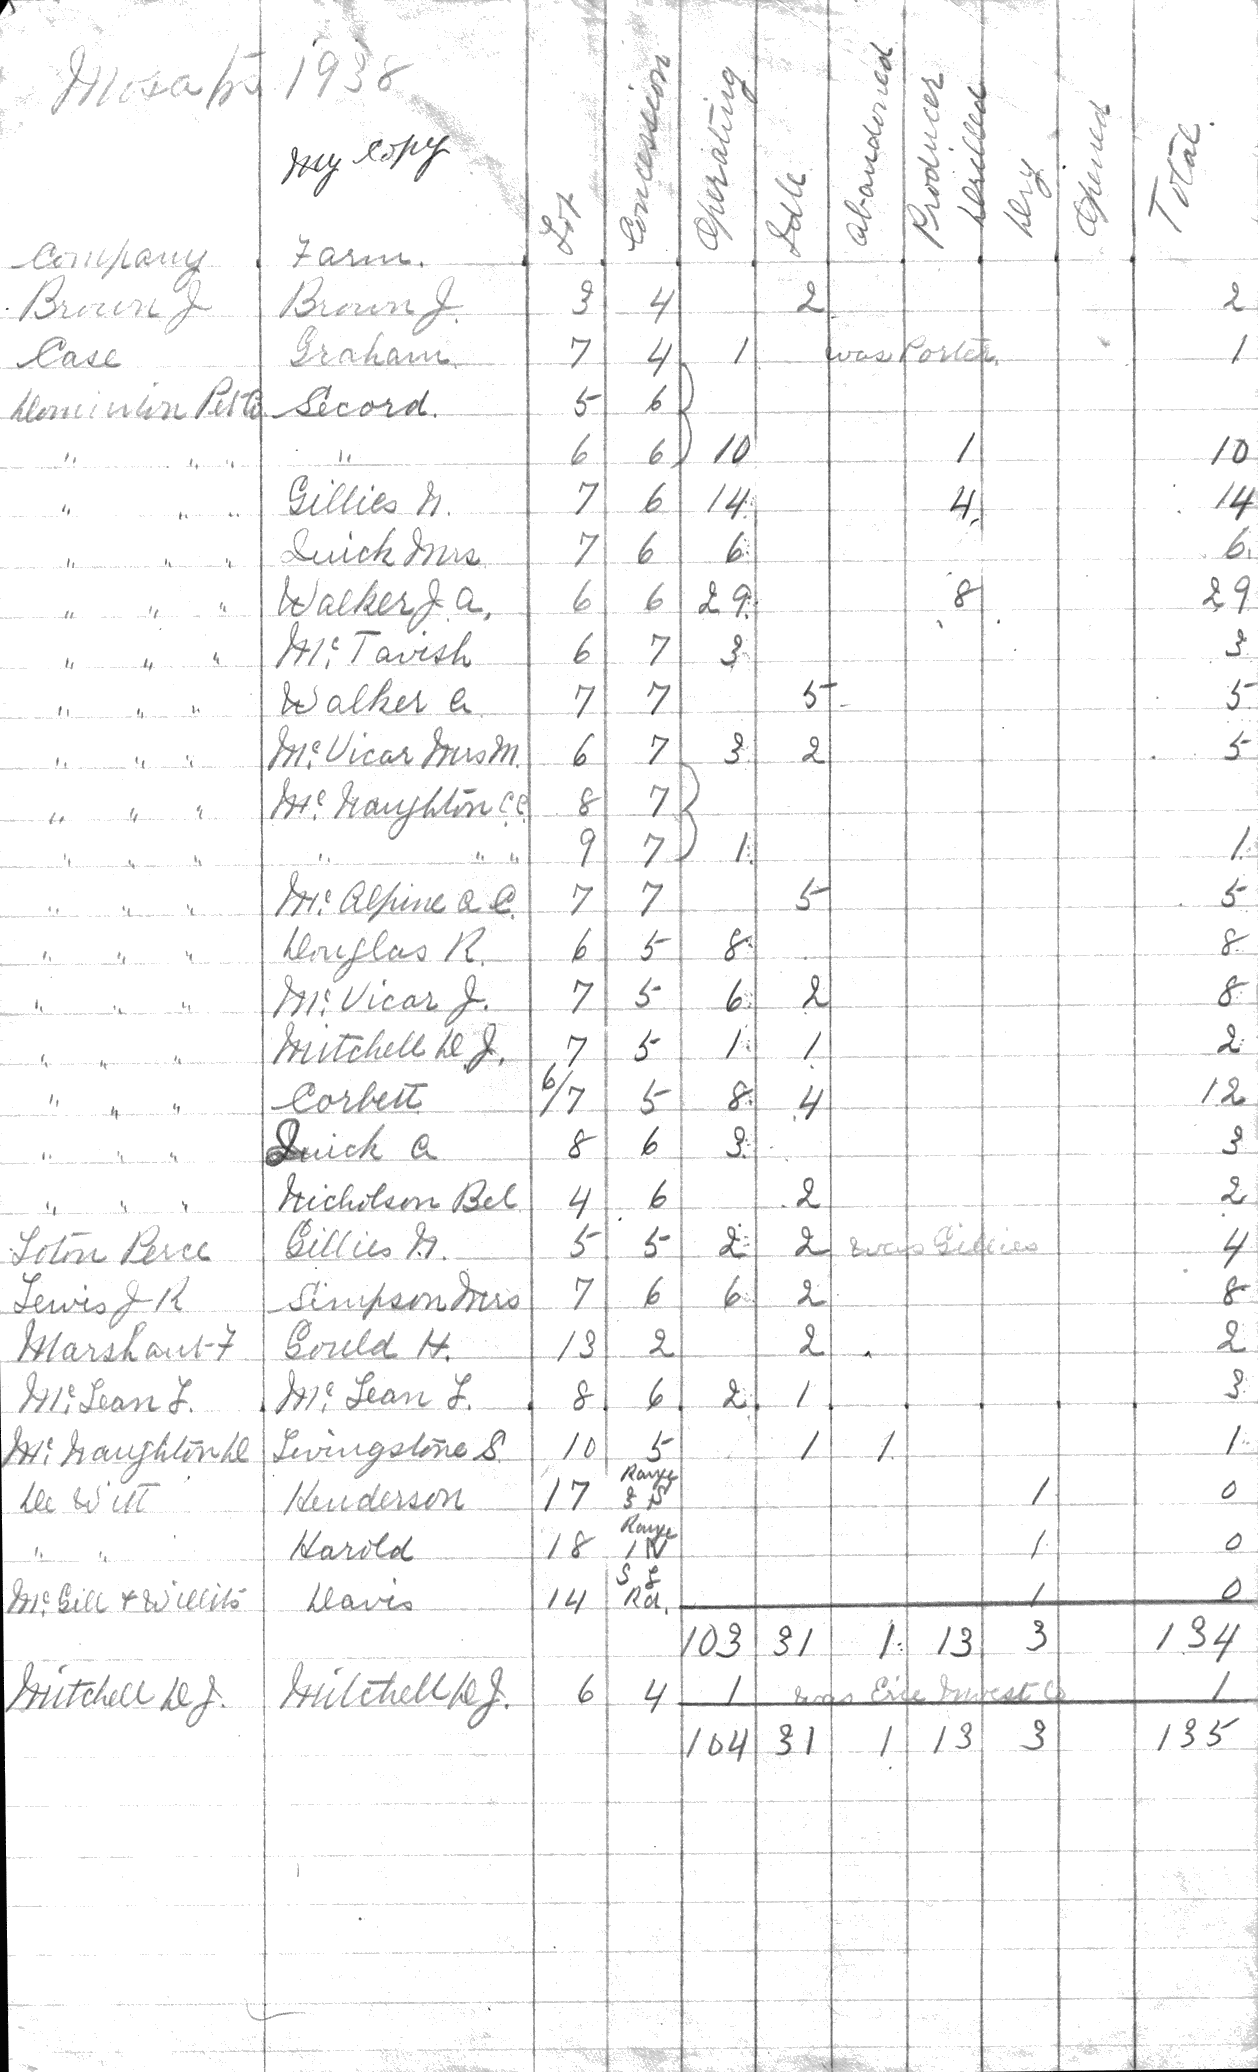 Mosa tp 1938
My Copy
Company Farm. Lot Concession Operating Idle abandoned Producer Drilled Dry Opened Total.
Brown J Brown J. 3 4 2 2
Case Graham 7 4 1 was Porter. 1
Dominion Pet Co Secord. 5 6
" " " " 6 6 10 1 10
" " " Gillies N. 7 6 14 4 14
" " " Quick Mrs 7 6 6 6
" " " Walker J. A. 6 6 29 8 29
" " " Mc Tavish 6 7 3 3
" " " Walker A 7 7 5 5
" " " Mc Vicar Mrs M. 6 7 3 2 5
" " " Mc Naughton C.C. 8 7
" " " " " " 9 7 1 1
" " " Mc Alpine A C. 7 7 5 5
" " " Douglas R. 6 5 8 8
" " " Mc Vicar J. 7 5 6 2 8
" " " Mitchell D. J. 7 5 1 1 2
" " " Corbett 6/7 5 8 4 12
" " " Quick A 8 6 3 3
" " " Nicholson Bel 4 6 2 2
Loton Perce Gillies N. 5 5 2 2 was Gillies 4
Lewis J R Simpson Mrs 7 6 6 2 8
Marshaut F Gould H. 13 2 2 2
Mc Lean L. Mc Lean L. 8 6 2 1 3
Mc Naughton D Livingstone S. 10 5 1 1 1
De Witt Henderson 17 Range 3 S 1 0
" " Harold 18 Range 1 N 1 0
Mc Gill & Willits Davis 14 S g Rd. 1 0
103 31 1 13 3 134
Mitchell D J. Mitchell D J. 6 4 1 was Erie Invest Co 1
104 31 1 13 3 135